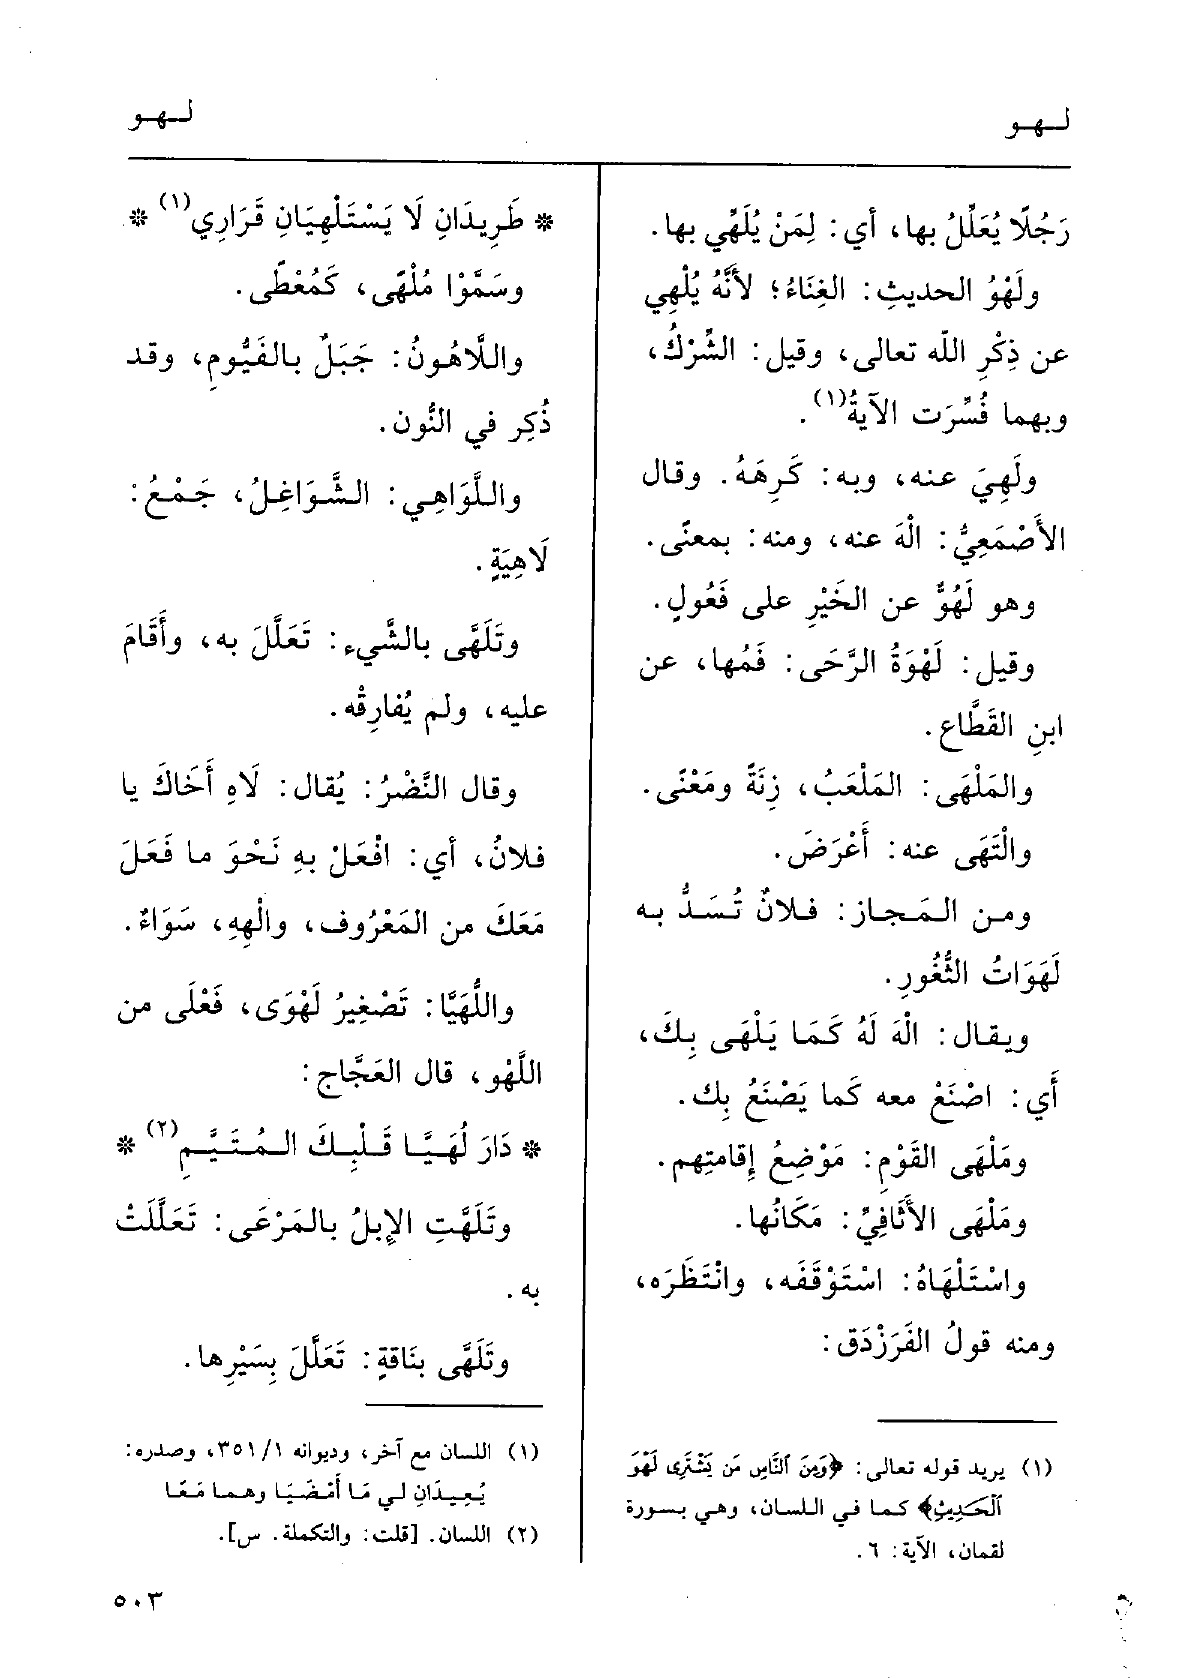 لـهـو
لـهـو
رَجُلًا يُعَلَّلُ بها، أي: لِمَنْ يُلَهَّي بها.
ولَهْوُ الحديثِ: الغِنَاءُ؛ لأنَّهُ يُلْهِي
عن ذِكْرِ الله تعالى، وقيل: الشِّرْكُ،
وبهما فُسِّرَت الآيةُ(١).
ولَهِيَ عنه، وبه: كَرِهَهُ. وقال
الأَصْمَعِيُّ: الْهَ عنه، ومنه: بمعنًى.
وهو لَهُوٌّ عن الخَيْرِ على فَعُولٍ.
وقيل: لَهْوَةُ الرَّحَى: فَمُها، عن
ابنِ القَطَّاع.
والمَلْهَى: المَلْعَبُ، زِنَةً ومَعْنًى.
والْتَهَى عنه: أَعْرَضَ.
ومـن الـمَـجـاز: فـلانٌ تُـسَـدُّ بـه
لَهَوَاتُ الثُّغُورِ.
ويـقـال: الْهَ لَهُ كَـمَـا يَلْهَى بِـكَ،
أَي: اصْنَعْ معه كَما يَصْنَعُ بِك.
ومَلْهَى القَوْمِ: مَوْضِعُ إِقامتِهم.
ومَلْهَى الأَثَافِيِّ: مَكَانُها.
واسْـتَلْهَاهُ: اسْتَوْقَفَه، وانْتَظَرَه،
ومنه قولُ الفَرَزْدَق:
(١) يريد قوله تعالى: ﴿وَمِنَ النَّاسِ مَن يَشْتَرِى لَهْوَ
الْحَدِيثِ﴾ كـما في اللسان، وهي بـسورة
لقمان، الآية: ٦.
* طَرِيدَانِ لَا يَسْتَلْهِيَانِ قَرَارِي(١) *
وسَمَّوْا مُلْهًى، كَمُعْطًى.
واللَّاهُونُ: جَبَلٌ بالفَيُّومِ، وقد
ذُكِر في النُّون.
واللَّوَاهِي: الشَّوَاغِلُ، جَمْعُ:
لَاهِيَةٍ.
وتَلَهَّى بالشَّيء: تَعَلَّلَ به، وأَقَامَ
عليه، ولم يُفارِقْه.
وقال النَّضْرُ: يُقال: لَاهِ أَخَاكَ يا
فلانُ، أي: افْعَلْ بِهِ نَحْوَ ما فَعَلَ
مَعَكَ من المَعْرُوف، والْهِهِ، سَوَاءٌ.
واللُّهَيَّا: تَصْغِيرُ لَهْوَى، فَعْلَى من
اللَّهْو، قال العَجَّاج:
* دَارَ لُهَـيَّـا قَـلْـبِـكَ الـمُـتَـيَّـمِ(٢) *
وتَلَهَّتِ الإبلُ بالمَرْعَى: تَعَلَّلَتْ
به.
وتَلَهَّى بنَاقةٍ: تَعَلَّلَ بِسَيْرِها.
(١) اللسان مع آخر، وديوانه ١/ ٣٥١، وصدره:
يُـعِـيـدَانِ لـي مَـا أَمْـضَـيَـا وهـمـا مَـعًـا
(٢) اللسان. [قلت: والتكملة. س].
٥٠٣